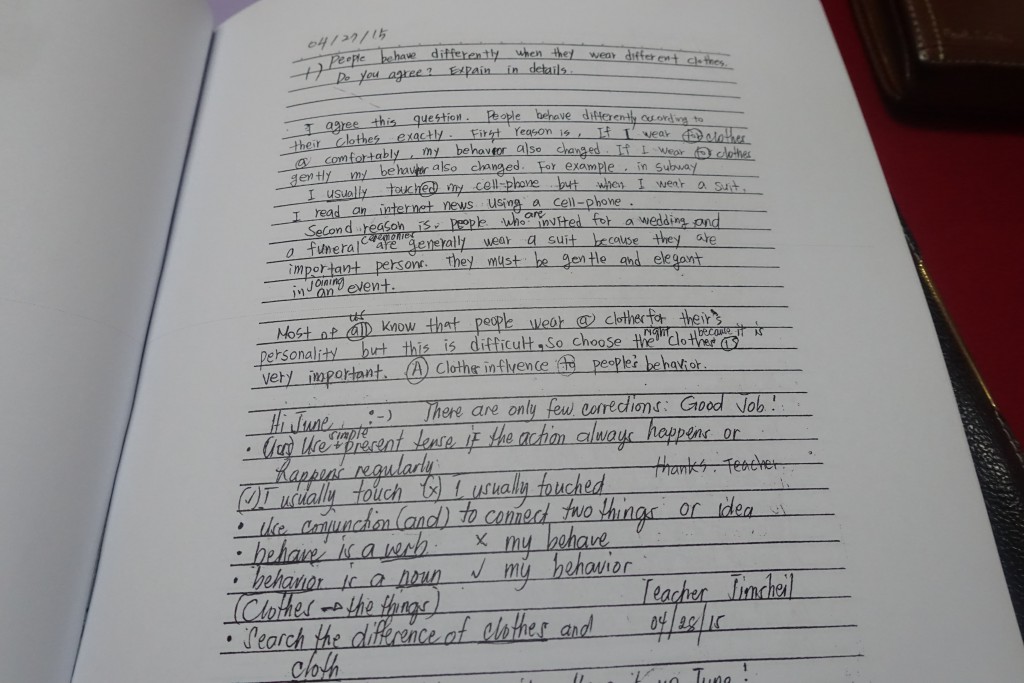 04/27/15
1) People behave differently when they wear different clothes.
Do you agree? Expain in details.
I agree this question. People behave differently according to
their clothes exactly. First reason is, If I wear clothes
a comfortably, my behavior also changed. If I wear clothes
gently my behavior also changed. For example, in subway
I usually touched my cell-phone but when I wear a suit,
I read an internet news using a cell-phone.
Second reason is. people who are invited for a wedding and
a funeral ceremonies are generally wear a suit because they are
important person. They must be gentle and elegant
in joining an event.
Most of us all know that people wear a clother for their's
personality but this is difficult, so choose the right clother because it is
very important. A clother influence to people's behavior.
Hi June, :-) There are only few corrections: Good Job!
• Use simple present tense if the action always happens or
happens regularly. thanks. Teacher.
(✓) I usually touch (x) I usually touched
• Use conjunction (and) to connect two things or idea
• behave is a verb. x my behave
• behavior is a noun ✓ my behavior
(Clothes → the things) Teacher Jimsheil
• Search the difference of clothes and 04/28/15
cloth
up June!